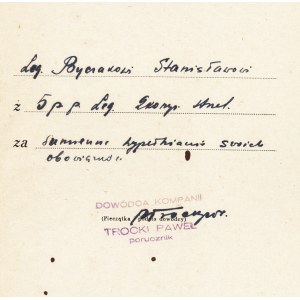 Leg. Stanisławowi
z 5 p.p. Leg.
za sumienne wypełnianie swoich
obowiązków.
DOWÓDCA KOMPANII
(Pieczątka i podpis dowódcy)
TROCKI PAWEŁ
porucznik